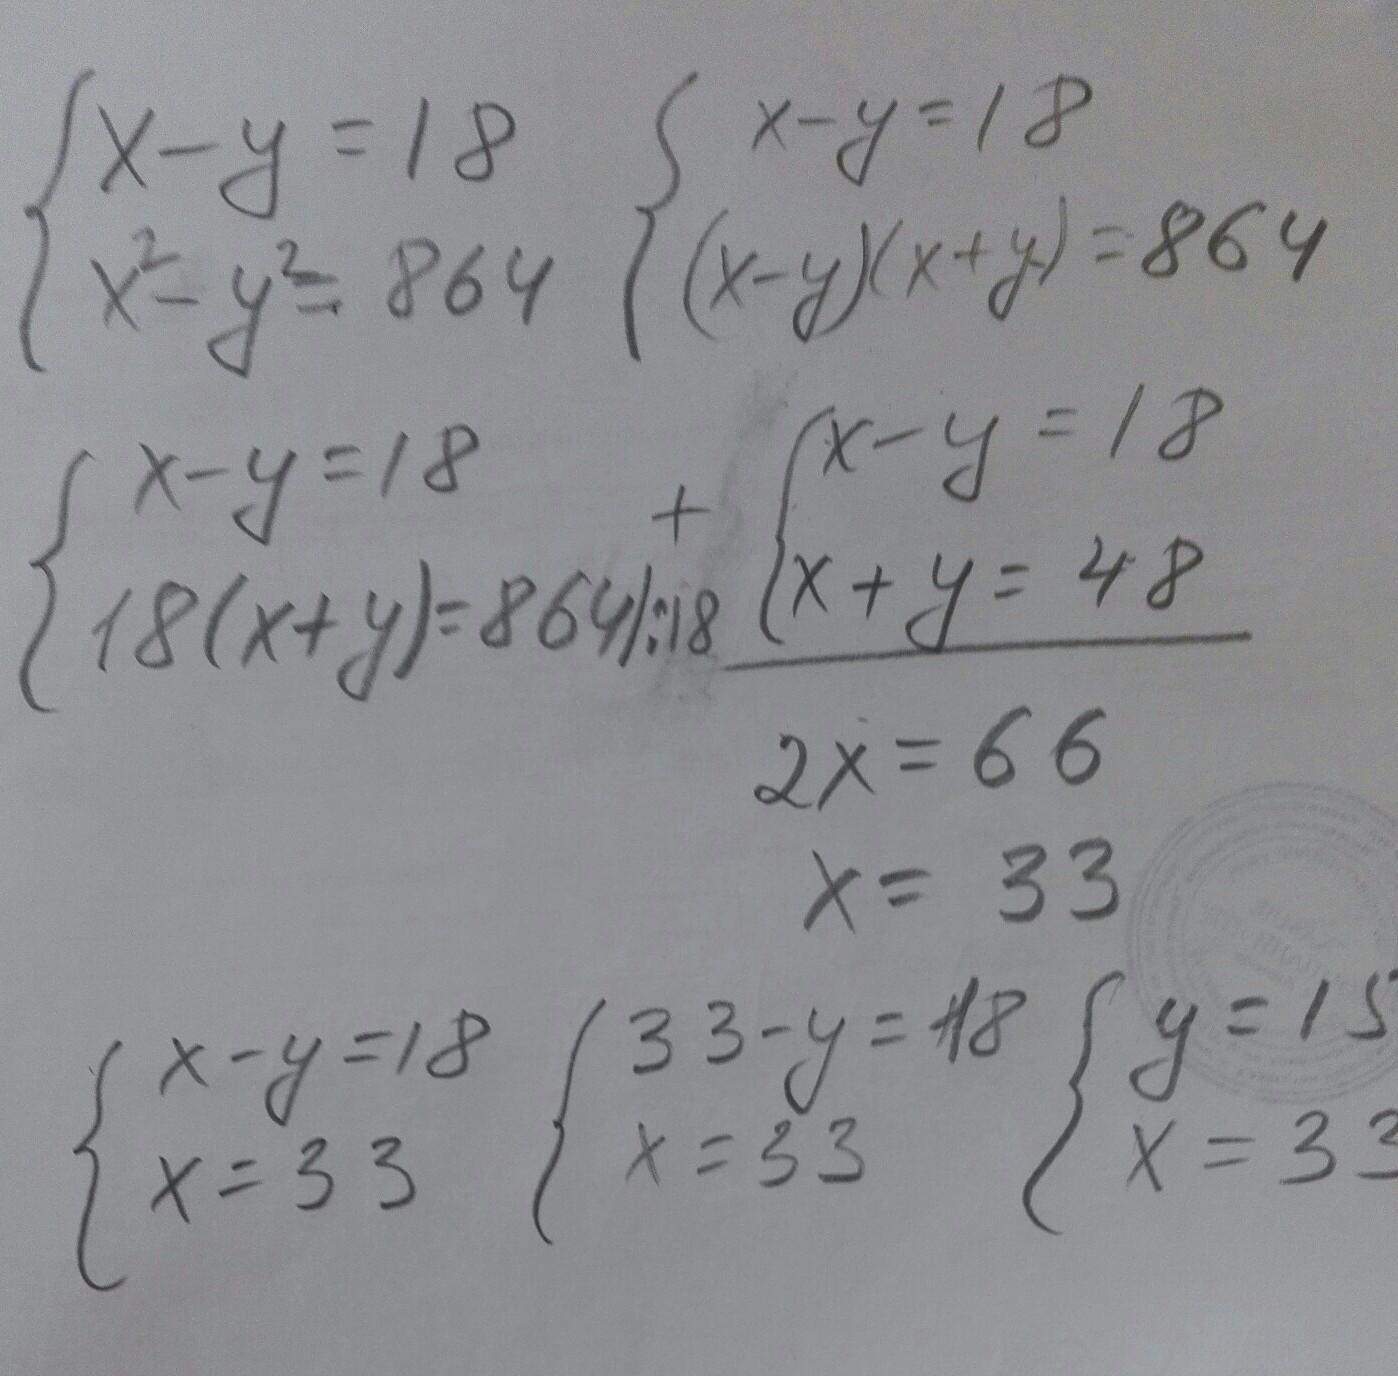 x-y=18
x²-y²=864
x-y=18
(x-y)(x+y)=864
x-y=18
18(x+y)=864|:18
+
x-y=18
x+y=48
2x=66
x=33
x-y=18
x=33
33-y=18
x=33
y=15
x=33